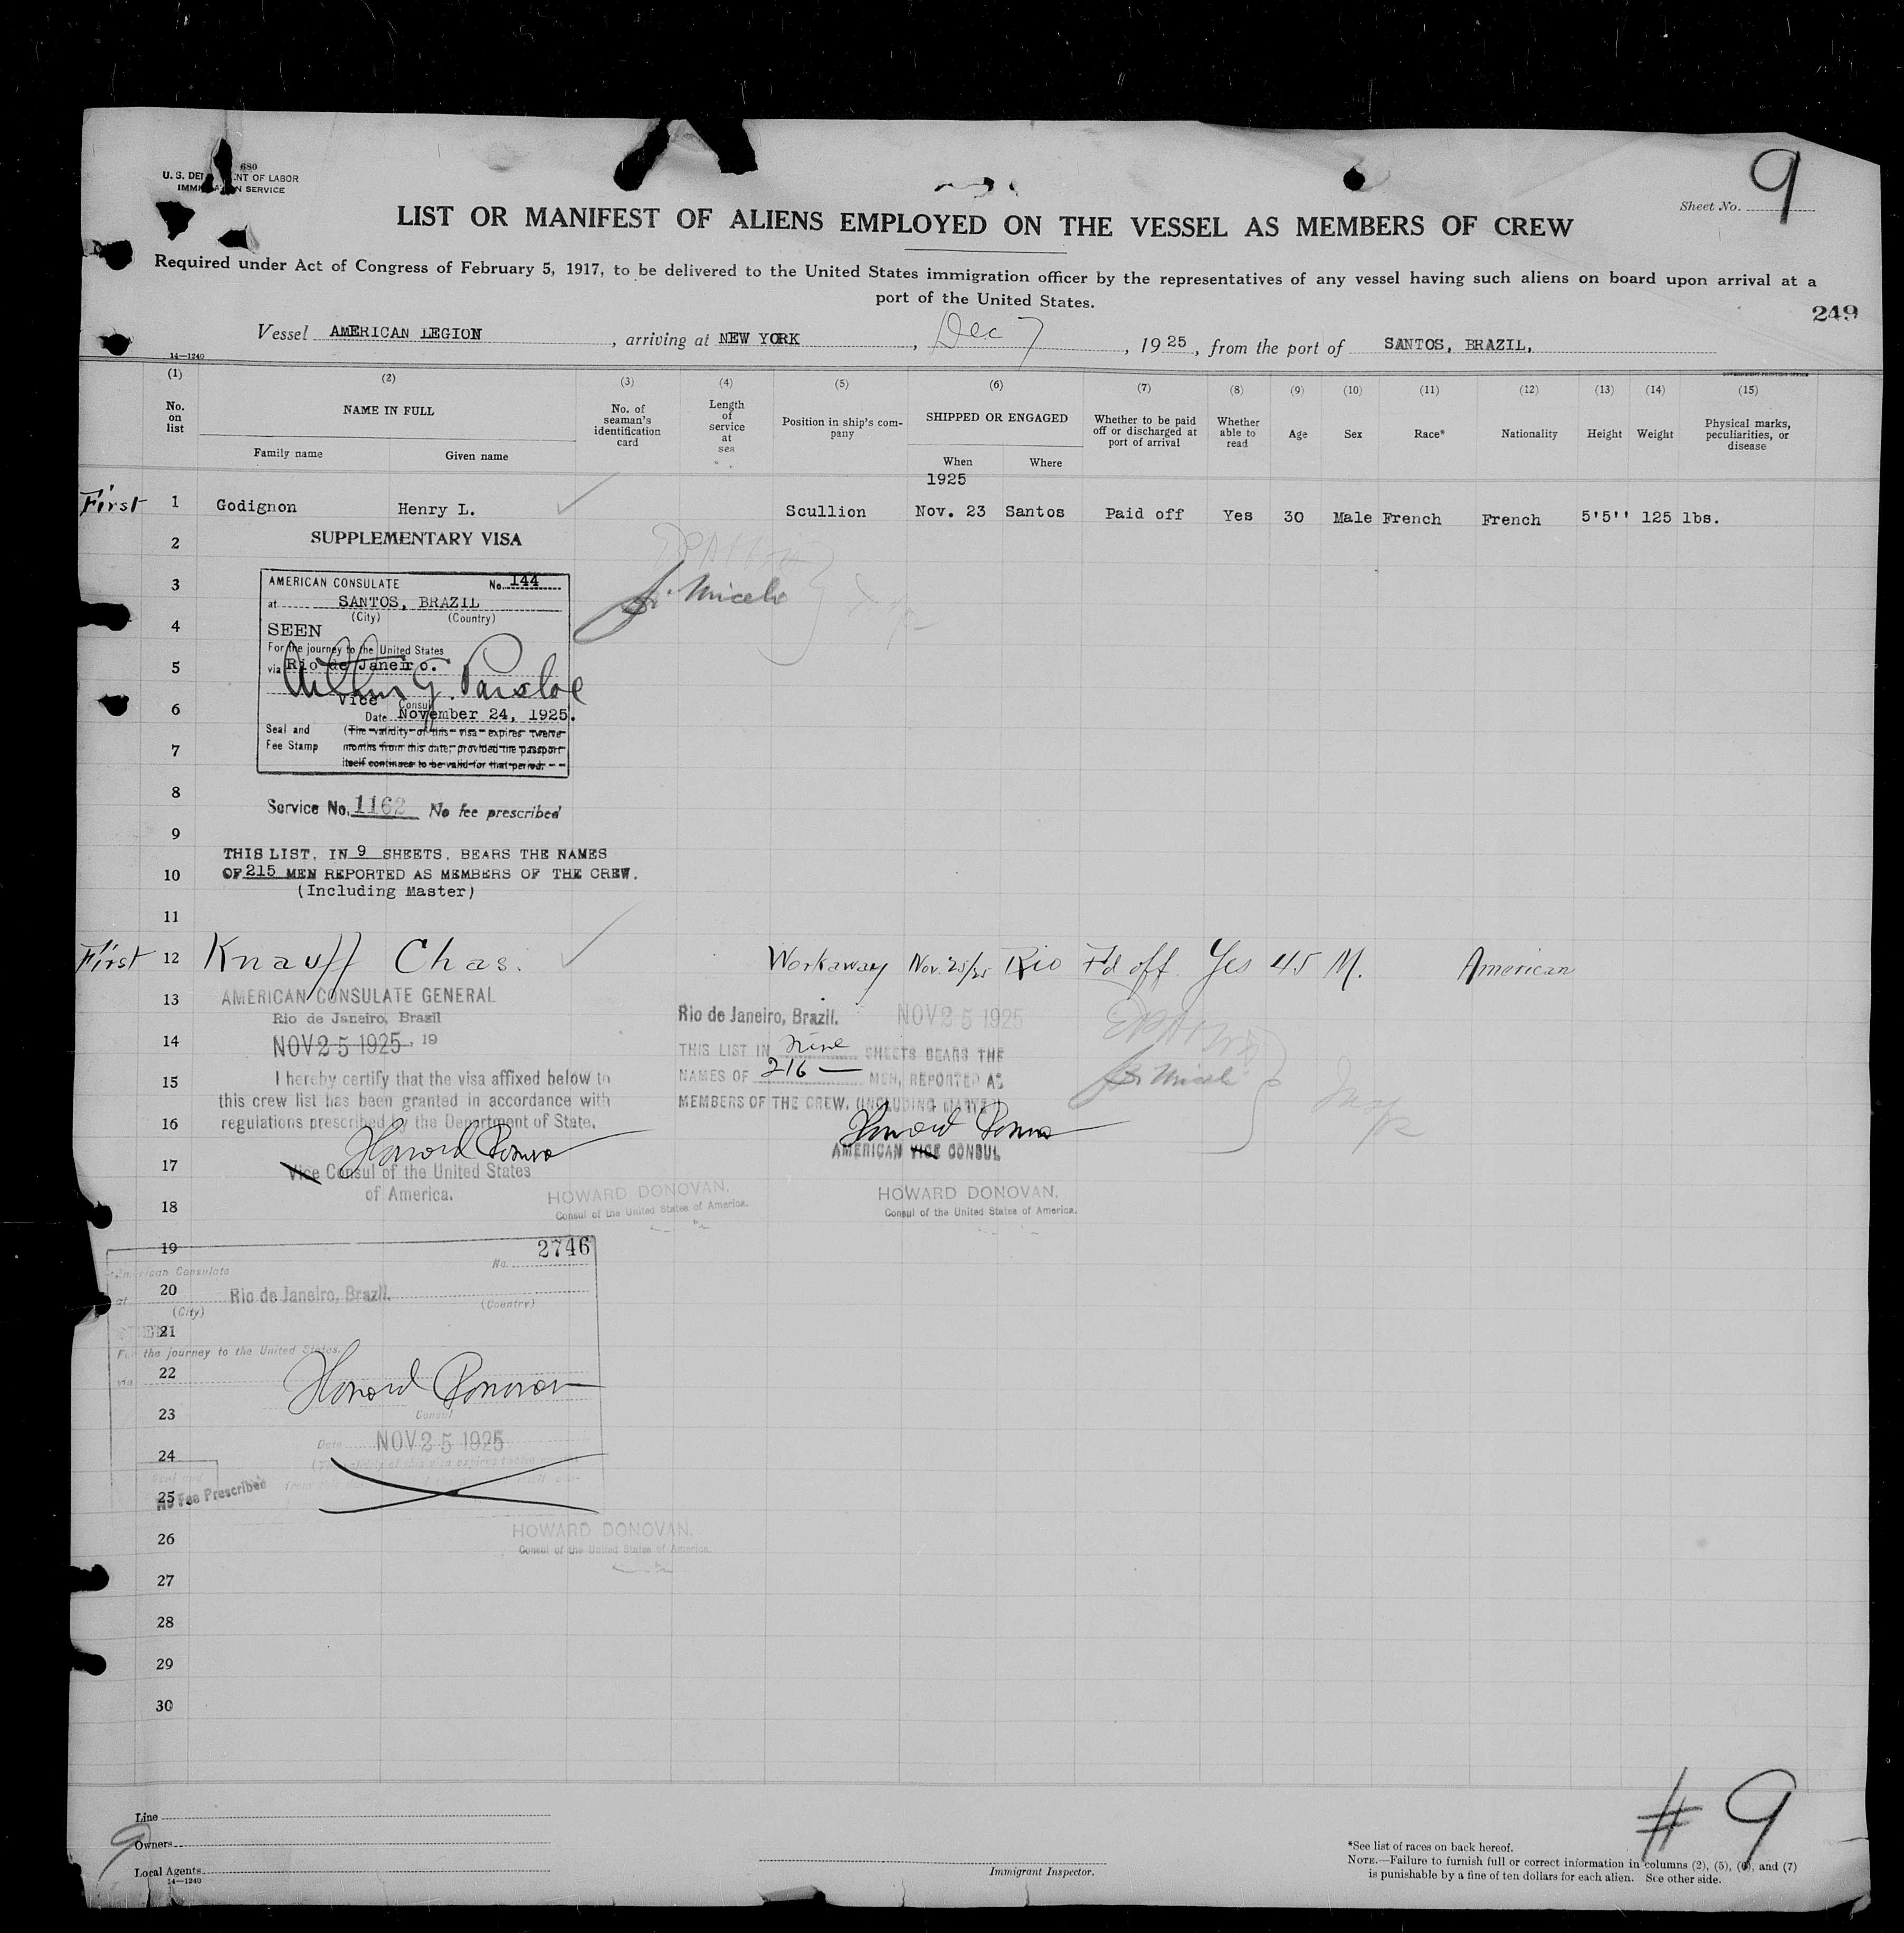 680
U. S. DE NT OF LABOR
IMMI N SERVICE
9
Sheet No.
LIST OR MANIFEST OF ALIENS EMPLOYED ON THE VESSEL AS MEMBERS OF CREW
Required under Act of Congress of February 5, 1917, to be delivered to the United States immigration officer by the representatives of any vessel having such aliens on board upon arrival at a
port of the United States.
249
Vessel AMERICAN LEGION, arriving at NEW YORK, Dec 7, 1925, from the port of SANTOS, BRAZIL,
14—1240
GOVERNMENT PRINTING OFFICE
(1) (2) (3) (4) (5) (6) (7) (8) (9) (10) (11) (12) (13) (14) (15)
No. on list
NAME IN FULL
Family name Given name
No. of seaman's identification card
Length of service at sea
Position in ship's company
SHIPPED OR ENGAGED
When Where
Whether to be paid off or discharged at port of arrival
Whether able to read
Age
Sex
Race*
Nationality
Height
Weight
Physical marks, peculiarities, or disease
1925
First 1 Godignon Henry L. Scullion Nov. 23 Santos Paid off Yes 30 Male French French 5'5'' 125 lbs.
2 SUPPLEMENTARY VISA
3 AMERICAN CONSULATE No. 144
at SANTOS, BRAZIL
(City) (Country)
4 SEEN
For the journey to the United States
5 via Rio de Janeiro.
Arthur G. Parsloe
6 Vice Consul
Date November 24, 1925.
Seal and Fee Stamp
(The validity of this visa expires twelve
7 months from this date, provided the passport
itself continues to be valid for that period.
8 Service No. 1162 No fee prescribed
9
THIS LIST, IN 9 SHEETS, BEARS THE NAMES
10 OF 215 MEN REPORTED AS MEMBERS OF THE CREW.
(Including Master)
11
First 12 Knauff Chas. Workaway Nov. 25/25 Rio P'd off. Yes 45 M. American
13 AMERICAN CONSULATE GENERAL
Rio de Janeiro, Brazil
14 NOV 25 1925, 19
15 I hereby certify that the visa affixed below to
this crew list has been granted in accordance with
16 regulations prescribed by the Department of State.
Howard Donovan
17 Vice Consul of the United States
of America.
18 HOWARD DONOVAN.
Consul of the United States of America.
Rio de Janeiro, Brazil. NOV 25 1925
THIS LIST IN nine SHEETS BEARS THE
NAMES OF 216 — MEN, REPORTED AS
MEMBERS OF THE CREW. (INCLUDING MASTER)
Howard Donovan
AMERICAN VICE CONSUL
HOWARD DONOVAN.
Consul of the United States of America.
Insp
19 2746
American Consulate No.
20 at Rio de Janeiro, Brazil.
(City) (Country)
21 SEEN
For the journey to the United States.
22 via
Howard Donovan
23 Consul
Date NOV 25 1925
24
25 No Fee Prescribed
26 HOWARD DONOVAN.
Consul of the United States of America.
27
28
29
30
Line
Owners
Local Agents
14—1240
9
Immigrant Inspector.
# 9
*See list of races on back hereof.
NOTE.—Failure to furnish full or correct information in columns (2), (5), (6), and (7)
is punishable by a fine of ten dollars for each alien. See other side.